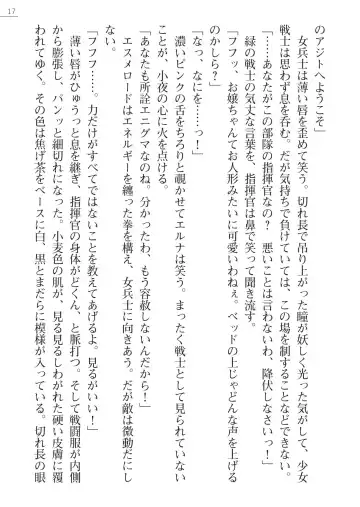 17
のアジトへようこそ」
　女兵士は薄い唇を歪めて笑う。切れ長で吊り上がった瞳が妖しく光った気がして、少女
戦士は思わず息を呑む。だが気持ちで負けていては、この場を制することなどできない。
「……あなたがこの部隊の指揮官なの？　悪いことは言わないわ、降伏しなさいっ！」
　緑の戦士の気丈な言葉を、指揮官は鼻で笑って聞き流す。
「フフッ、お嬢ちゃんてお人形みたいに可愛いわねぇ。ベッドの上じゃどんな声を上げる
のかしら？」
「なっ、なにを……っ！」
　濃いピンクの舌をちろりと覗かせてエルナは笑う。まったく戦士として見られていない
ことが、小夜の心に火を点ける。
「あなたも所詮エニグマなのね。分かったわ、もう容赦しないんだから！」
　エスメロードはエネルギーを纏った拳を構え、女兵士に向きあう。だが敵は微動だにし
ない。
「フフフ……。力だけがすべてではないことを教えてあげるよ。見るがいい！」
　薄い唇がひゅうっと息を吐くと、指揮官の身体がどくん、と脈打つ。そして戦闘服が内側
から膨張し、パンッと細切れになった。小麦色の肌が、見る見るしわがれた硬い皮膚に覆
われてゆく。その色は焦げ茶をベースに白、黒とまだらに模様が入っていた。切れ長の眼